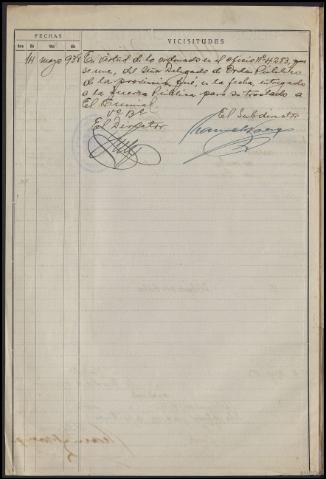 FECHAS
VICISITUDES
14 mayo 938 En virtud de lo ordenado en el oficio Nº 4.283, que
se une, del Señor Delegado de Orden Público
de la provincia fué en la fecha entregado
a la fuerza Pública para su traslado a
El
Vº Bº
El Subdirector
El Director